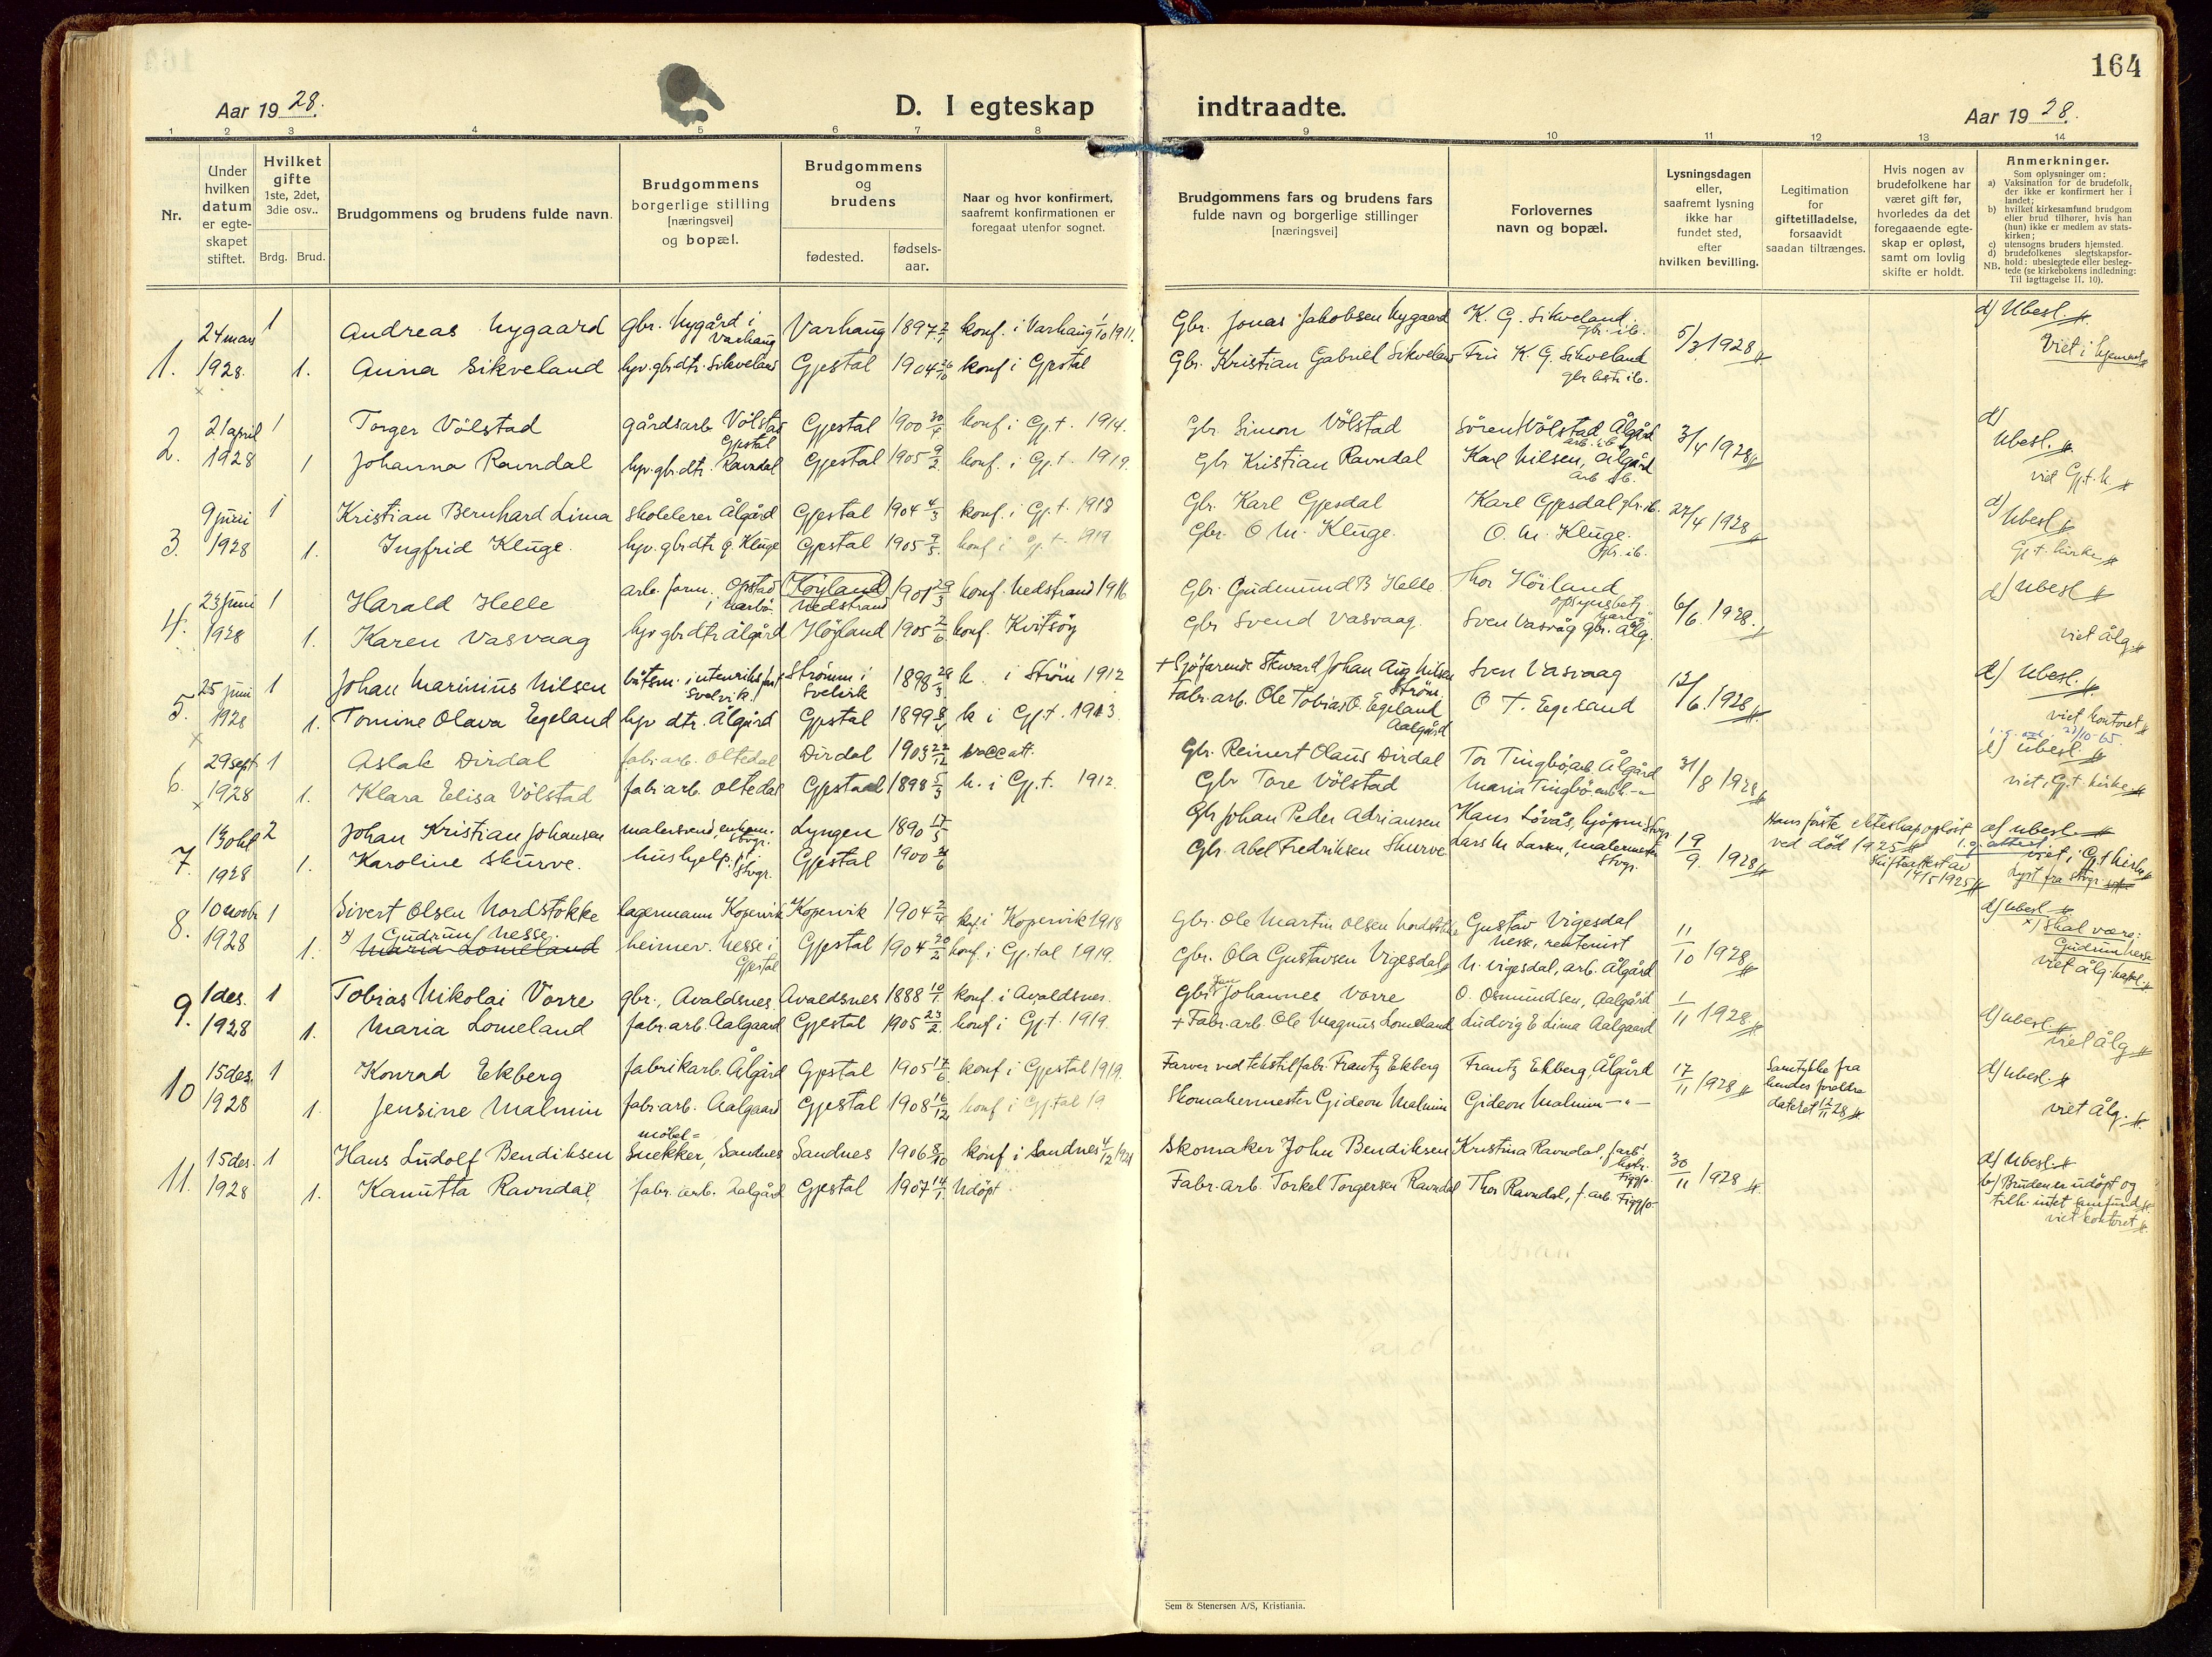 164
Aar 1928.
D. I egteskap indtraadte.
Aar 1928.
1 2 3 4 5 6 7 8 9 10 11 12 13 14
Nr.
Under hvilken datum er egteskapet stiftet.
Hvilket gifte 1ste, 2det, 3die osv..
Brdg. Brud.
Brudgommens og brudens fulde navn.
Brudgommens borgerlige stilling [næringsvei] og bopæl.
Brudgommens og brudens
fødested.
fødsels-aar.
Naar og hvor konfirmert, saafremt konfirmationen er foregaat utenfor sognet.
Brudgommens fars og brudens fars fulde navn og borgerlige stillinger [næringsvei]
Forlovernes navn og bopæl.
Lysningsdagen eller, saafremt lysning ikke har fundet sted, efter hvilken bevilling.
Legitimation for giftetilladelse, forsaavidt saadan tiltrænges.
Hvis nogen av brudefolkene har været gift før, hvorledes da det foregaaende egteskap er opløst, samt om lovlig skifte er holdt.
Anmerkninger.
Som oplysninger om:
a) Vaksination for de brudefolk, der ikke er konfirmert her i landet;
b) hvilket kirkesamfund brudgom eller brud tilhører, hvis han (hun) ikke er medlem av statskirken;
c) utensogns bruders hjemsted.
d) brudefolkenes slegtskapsforhold: ubeslegtede eller beslegtede (se kirkebokens indledning: Til iagttagelse II. 10).
NB.
1. 24 mars 1 Andreas Nygaard gbr. Nygård i Varhaug Varhaug 1897 konf. i Varhaug 1/10 1911. Gbr. Jonas Jakobsen Nygaard K. G. Sikveland gbr. ib. 5/3 1928 d) Ubesl.
1928. 1. Anna Sikveland hjv. gbrdtr. Sikveland Gjestal 1904 konf i Gjestal Gbr. Kristian Gabriel Sikveland Fru K. G. Sikveland ib. Viet i hjemmet
2. 21 april 1 Torger Völstad gårdsarb Völstad Gjestal Gjestal 1900 30/4 konf. i Gj.t. 1914. Gbr. Simon Völstad Sören Völstad Ålgård arb. ib. 3/4 1928 d) Ubesl.
1928 1 Johanna Ravndal hjv. gbr. dtr. Ravndal Gjestal 1905 9/2 konf. i Gj.t. 1919. Gbr Kristian Ravndal Karl Nilsen, Ålgård arb ib. viet Gj.t. k.
3. 9 juni 1 Kristian Bernhard Lima Skolelerer Ålgård Gjestal 1904 4/3 konf. i Gj.t. 1918 Gbr. Karl Gjesdal Karl Gjesdal gbr. ib. 27/4 1928 d) Ubesl
1928 1. Ingfrid Kluge. hjv. gbrdtr g. Kluge Gjestal 1905 konf i Gj.t. 1919 Gbr. O M. Kluge. O. M. Kluge. gbr. ib. Gj.t. kirke
4. 23 juni 1 Harald Helle arb. form. Opstad i Nærbö. Höyland Nedstrand 1901 29/3 konf. Nedstrand 1916 Gbr. Gudmund B Helle. Thor Höiland opsynsbetj. Nærbö 6/6. 1928. d) Ubesl
1928 1. Karen Vasvaag hjv gbrdtr Ålgård Höyland 1905 2/6 konf. Kvitsöy Gbr Svend Vasvaag. Sven Vasvåg gbr. Ålg. viet Ålg
5. 25 juni 1 Johan Marinius Nilsen båtsm. i utenriksfart Svelvik. Strömm i Svelvik 1898 k. i Ström 1912 + Sjöfarende Steward Johan Aug Nilsen Ström. Sven Vasvaag 12/6. 1928 d) Ubesl.
1928 1. Tomine Olava Egeland hjv dtr. Ålgård Gjestal 1899 k i Gj.t. 1913. Fabr. arb. Ole Tobias O. Egeland Aalgård O T. Egeland viet kontoret
6. 29 sept 1 Aslak Dirdal fabr. arb. Oltedal Dirdal 1903 22/12 vacc att. Gbr. Reinert Olaus Dirdal Tor Tingbö, arb. Ålgård 31/8 1928 d) ubesl.
1928 1. Klara Elisa Völstad fabr arb. Oltedal Gjestaal 1898 5/3 k. i Gj.t. 1912. Gbr Tore Völstad Maria Tingbö viet i Gj.t kirke
7. 13 okt 2 Johan Kristian Johansen malersvend, enkem. Stvgr. Lyngen 1890 17/5 Gbr Johan Peder Adriansen Hans Lövås, kjöpm Stvgr. 19/9. 1928 Hans förste ekteskap oplöst ved död 1925 Skifteattest av 14/5 1925 d) ubesl.
1928 1. Karoline Skurve. hushjelp. Stvgr. Gjestal 1900 Gbr. Abel Fredriksen Skurve Lars M Larsen, malermester Stvgr. viet i Gj.t kirke Lyst fra Stvgr.
8. 10 novbr 1 Sivert Olsen Nordstokke lagermann Kopervik Kopervik 1904 konf. i Kopervik 1918 Gbr. Ole Martin Olsen Nordstokke Gustav Vigesdal Nesse, rentenist 11/10 1928 d) ubesl
1928 1. x) Gudrun Nesse. Maria Lomeland heimev. Nesse i Gjestal Gjestal 1904 20/2 konf. i Gj.tal 1919. Gbr. Ola Gustavsen Vigesdal N. Vigesdal, arb. Ålgård x) Skal være: Gudrun Nesse viet Ålg. kapel.
9. 1 des. 1 Tobias Nikolai Vorre gbr., Avaldsnes. Avaldsnes 1888 10/1. konf. i Avaldsnes. Gbr. Johannes Vorre O. Osmundsen, Aalgård 1/11 1928 d) ubesl.
1928 1. Maria Lomeland fabr. arb. Aalgaard Gjestal 1905 23/2 konf i Gj.t. 1919. + Fabr. arb. Ole Magnus Lomeland Ludvig E Lima Aalgaard viet Ålg
10 15 des. 1 Konrad Ekberg fabrikarb. Ålgård Gjestal 1905 17/6. konf i Gjestal 1919. Farver ved tekstilfabr. Frantz Ekberg Frantz Ekberg, Ålgård 17/11 1928 Samtykke fra hendes foreldre dateret 12/11 28 d) ubesl.
1928 1. Jensine Malmin fabr. arb. Aalgaard Gjestal 1908 16/12 konf i Gj.tal 19 Skomakermester Gideon Malmin Gideon Malmin —"— viet Ålg.
11. 15 des. 1 Hans Ludolf Bendiksen möbel= Snekker, Sandnes Sandnes 1906 8/10 konf i Sandnes 4/12 1921 Skomaker John Bendiksen Kristina Ravndal, farb. hstr. Figgjo. 30/11 1928 d) Ubesl.
1928 1. Kanutta Ravndal fabr. arb. Aalgård Gjestal 1907 14/1. Udöpt. Fabr. arb. Torkel Torgersen Ravndal Thor Ravndal, f. arb Figgjo. b) Bruden er udöpt og tilh. intet samfund viet kontoret
Sem & Stenersen A/S, Kristiania.